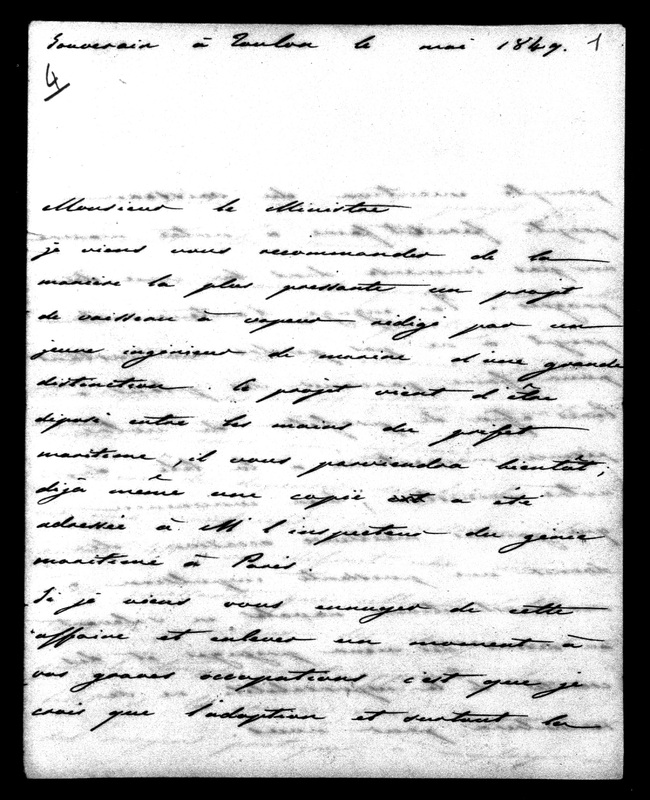 Souverain à Toulon le mai 1849. 1
4
Monsieur le Ministre
je viens vous recommander de la
manière la plus pressante un projet
de vaisseau à vapeur rédigé par un
jeune ingénieur de marine d'une grande
distinction. le projet vient d'être
déposé entre les mains du préfet
maritime, il vous parviendra bientôt;
déjà même une copie est a été
adressée à M l'inspecteur du génie
maritime à Paris.
Si je viens vous ennuyer de cette
affaire et enlever un moment à
vos graves occupations c'est que je
crois que l'adoption et surtout la